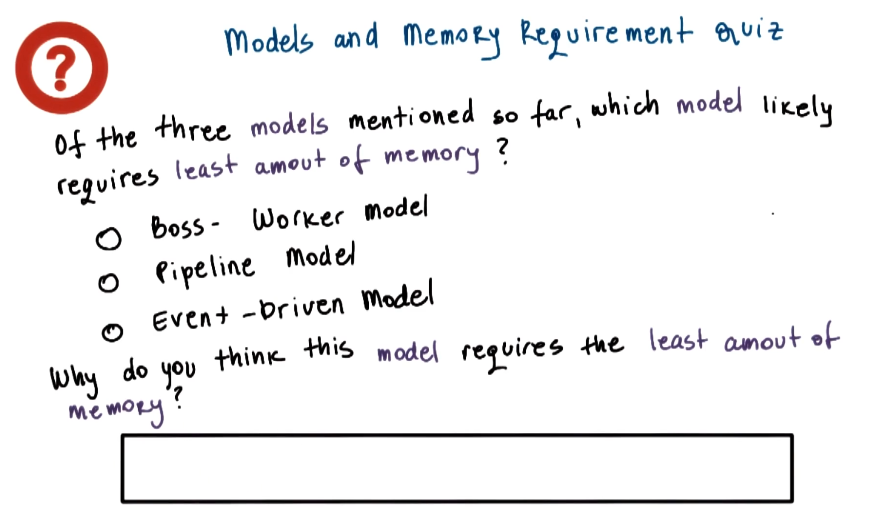 ?
Models and Memory Requirement Quiz
Of the three models mentioned so far, which model likely
requires least amout of memory ?
Boss- Worker model
Pipeline Model
Event-Driven Model
Why do you think this model requires the least amout of
memory ?